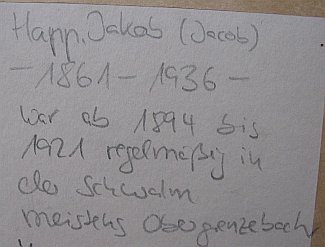 Happ, Jakob (Jacob)
- 1861 - 1936 -
war ab 1894 bis
1921 regelmäßig in
der Schwalm
meistens Obergrenzebach